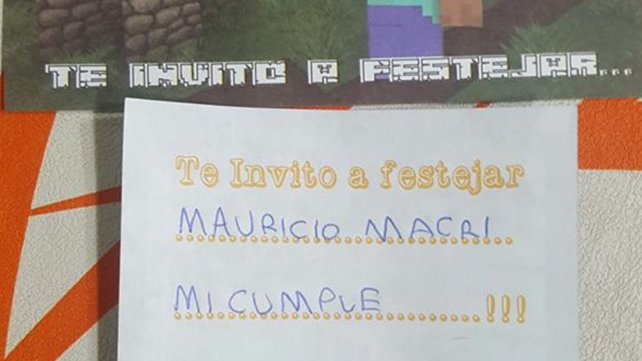 TE INVITO A FESTEJAR...
Te Invito a festejar
MAURICIO MACRI
MI CUMPLE..........!!!